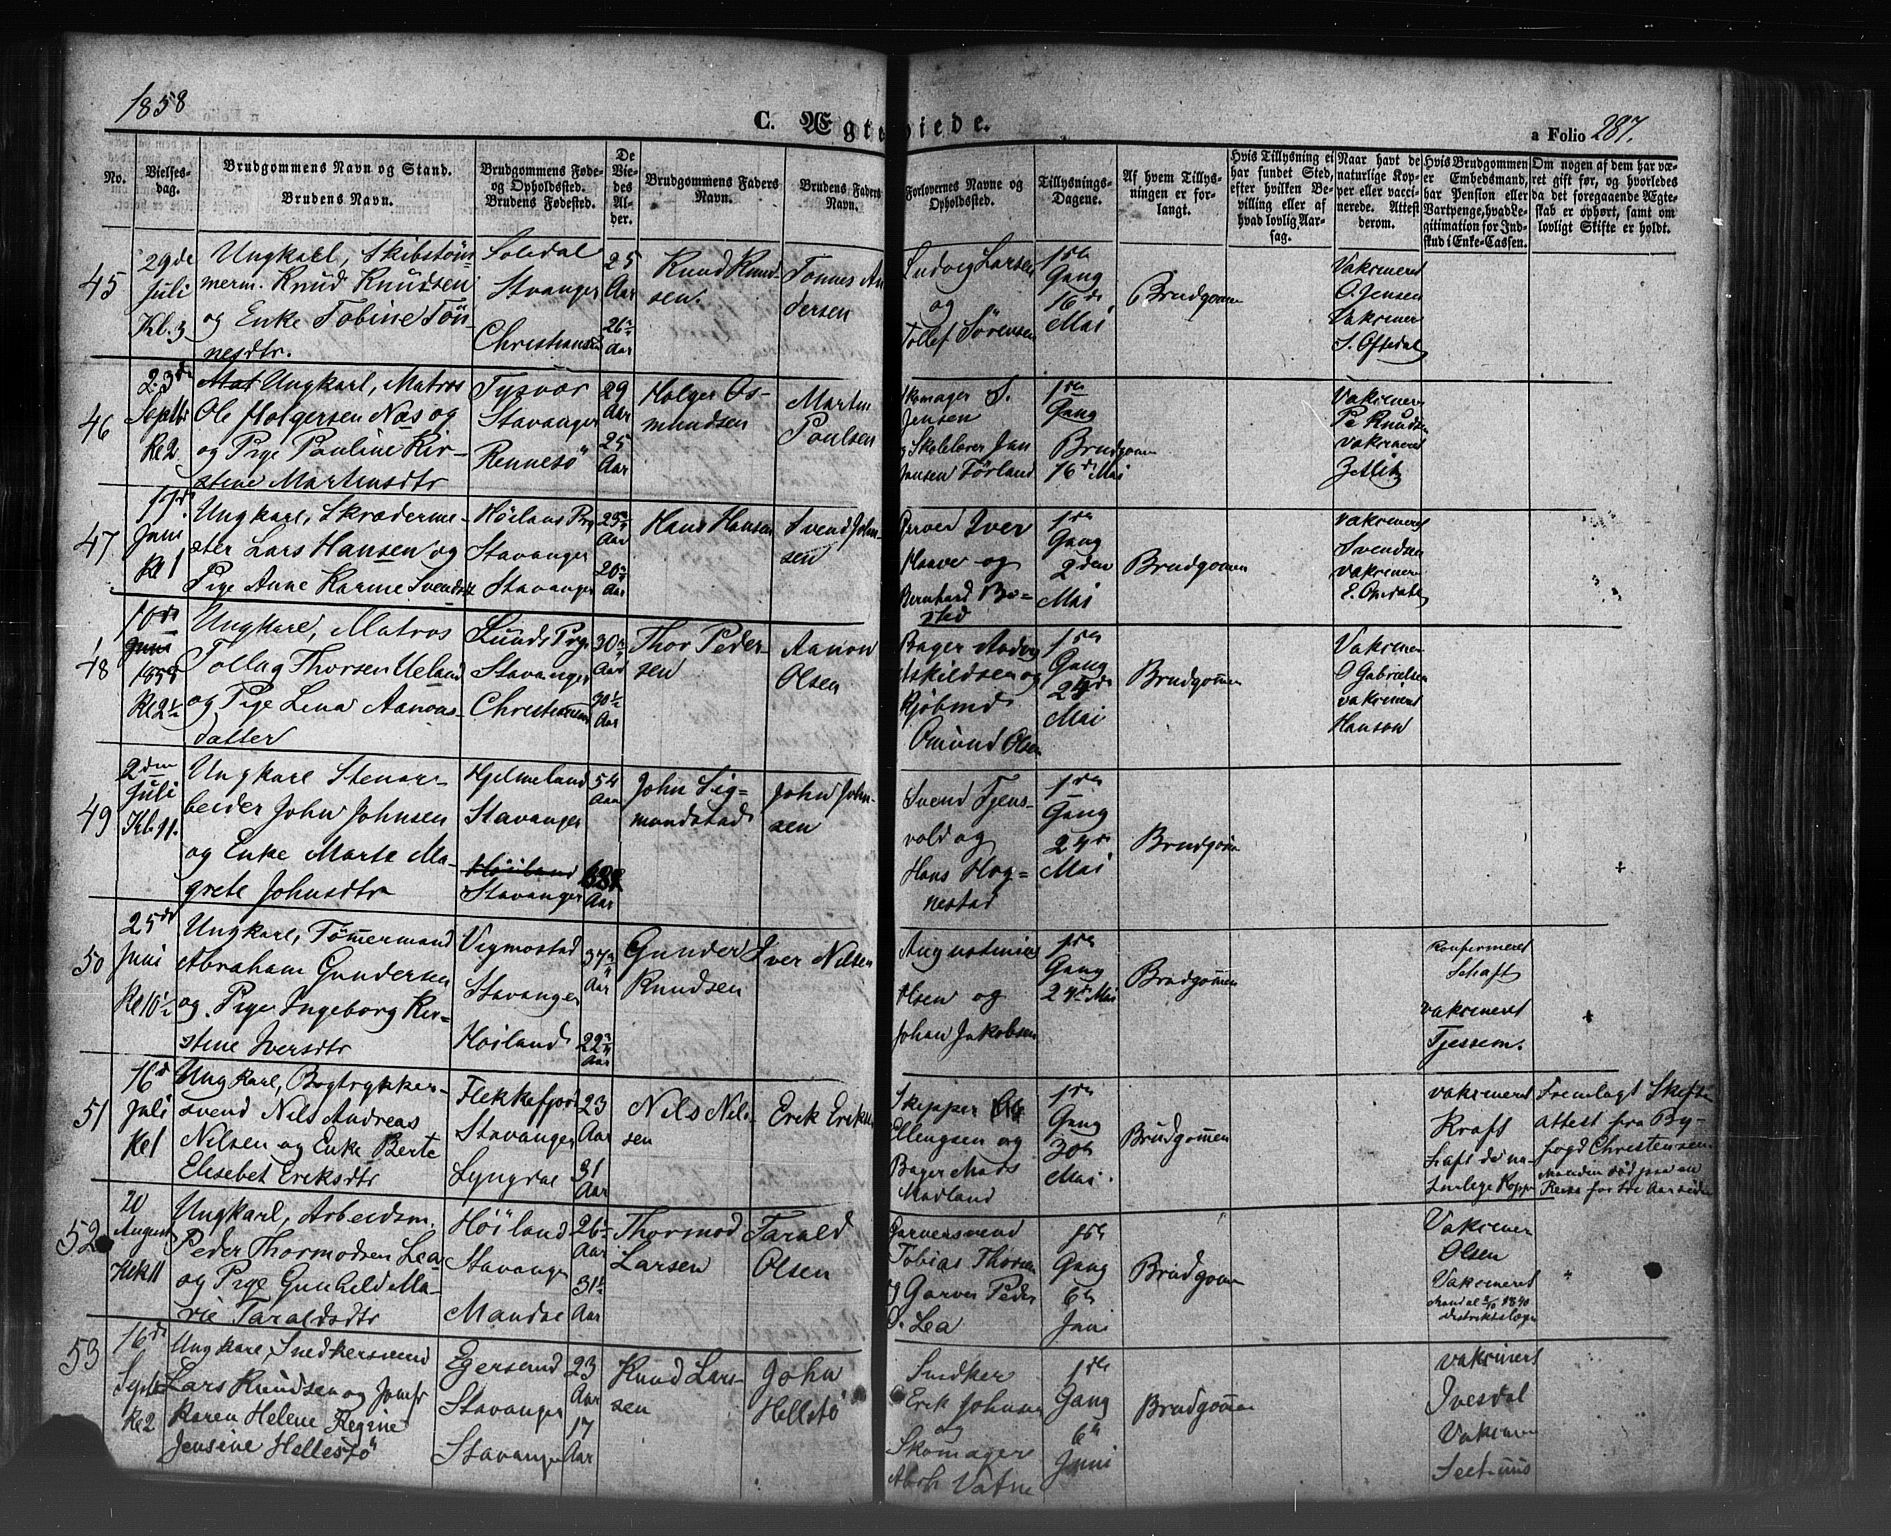 1858
C. Ægteviede.
a Folio 287.
No.
Vielses-
dag.
Brudgommens Navn og Stand.
Brudens Navn.
Brudgommens Føde-
og Opholdssted.
Brudens Fødested.
De
Vie-
des
Al-
der.
Brudgommens Faders
Navn.
Brudens Faders
Navn.
Forlovernes Navne og
Opholdssted.
Tillysnings-
Dagene.
Af hvem Tillys-
ningen er for-
langt.
Hvis Tillysning ei
har fundet Sted,
efter hvilken Be-
villing eller af
hvad lovlig Aar-
sag.
Naar havt de
naturlige Kop-
per eller vacci-
nerede. Attest
derom.
Hvis Brudgommen
er Embedsmand,
har Pension eller
Vartpenge, hvad Le-
gitimation for Ind-
skud i Enke-Cassen.
Om nogen af dem har væ-
ret gift før, og hvorledes
da det foregaaende Ægte-
skab er ophørt, samt om
lovligt Skifte er holdt.
45
29de
Juli
Kl. 3
Ungkarl, Skibstøm-
merm. Knud Knudsen
og Enke Tobine Tøn-
nesdtr.
Soledal
Stavanger
Christiansd
25
Aar
26
Aar
Knud Knud-
sen.
Tønnes An
dersen
Ludvig Larsen
og
Tollef Sørensen
1ste
Gang
16de
Mai
Brudgommen
Vakcineret
O. Jensen
Vakciner
S. Oftedal
46
23de
Septbr
Kl 2
Ungkarl, Matros
Ole Holgersen Næs og
og Pige Pauline Kir-
stine Martinsdtr
Tysvær
Stavanger
Rennesø
29
Aar
25
Aar
Holger Os-
mundsen
Martin
Poulsen
Skomager S.
Jensen
og Skolelærer Jan
Jansen Førland
1ste
Gang
Brudgommen
16de Mai
Vakciner
P Knudsen
vakcineret
Zetlitz
47
17de
Juni
Kl 1
Ungkarl, Skrædderme-
ster Lars Hansen og
Pige Anne Karine Svendsdt
Høilans Prg
Stavanger
Stavanger
25
Aar
20
Aar
Hans Hansen
Svend John-
sen
Iver
Haaver og
Bernhard Bo-
sted
1ste
Gang
2den
Mai
Brudgommen
vakcineret
Svendsen
vakciner
48
10de
Juni
1858
Kl 2½
Ungkarl, Matros
Tollag Thorsen Ueland
og Pige Lena Aanons-
datter
Lunds Prg
Stavanger
Christiansand
30
Aar
30½
Aar
Thor Peder-
sen
Aanon
Olsen
Bager
Askildsen og
Kjøbmd
Omund Olsen
1ste
Gang
24de
Mai
Brudgommen
Vakciner
O Gabrielsen
vakcineret
Hanson
49
2den
Juli
Kl. 11.
Ungkarl Stenar-
beider John Johnsen
og Enke Marte Ma-
grete Johnsdtr
Hjelmeland
Stavanger
Høiland
Stavanger
54
Aar
Aar
John Sig-
mundstad
John John-
sen
Svend Tjens-
vold og
Hans Hog-
nestad
1ste
Gang
24de
Mai
Brudgommen
50
25de
Juni
Kl 10½
Ungkarl, Tømmermand
Abraham Gundersen
og Pige Ingeborg Kir-
stine Iversdtr
Vigmostad
Stavanger
Høiland
37
Aar
22
Aar
Gunder
Knudsen
Iver Nilsen
Augustinius
Olsen og
Johan Jakobsen
1ste
Gang
24de Mai
Brudgommen
Konfirmeret
Schaft
vakcineret
Tjessem.
51
16de
Juli
Kl 1
Ungkarl, Bogtrykker-
svend Nils Andreas
Nilsen og Enke Berte
Elisebet Eriksdtr
Flekkefjord
Stavanger
Lyngdal
23
Aar
31
Aar
Nils Nil-
sen
Erik Eriksen
Skipper
Ellingsen og
Bager Mads
Madland
1ste
Gang
30te
Mai
Brudgommen
vakcineret
Kraft
haft de na-
turlige Kopper
Fremlagt Skifte-
attest fra By-
fogd Christensen
Manden død paa en
Reise for tre Aar siden
52
20
August
Kl 11
Ungkarl, Arbeidsm.
Peder Thormodsen Lea
og Pige Gunhild Ma-
rie Taraldsdtr
Høiland
Stavanger
Mandal
26
Aar
31
Aar
Thormod
Larsen
Tarald
Olsen
Garversvend
Tobias Thorsen
og Garver Peder
O. Lea
1ste
Gang
6te
Juni
Brudgommen
Vakciner
Olsen
Vakcineret
Mandal 2/10 1840
Distriktslæge
53
16de
Septbr
Kl 2
Ungkarl, Snedkersvend
Lars Knudsen og Jomfr
Karen Helene Regine
Jensine Hellestø
Egersund
Stavanger
Stavanger
23
Aar
17
Aar
Knud Lar-
sen
John
Hellestø
Snedker
Erik Johnsen
og
Skomager
Abrh Vatne
1ste
Gang
6te
Juni
Brudgommen
vakcineret
Ivesdal
Vakciner